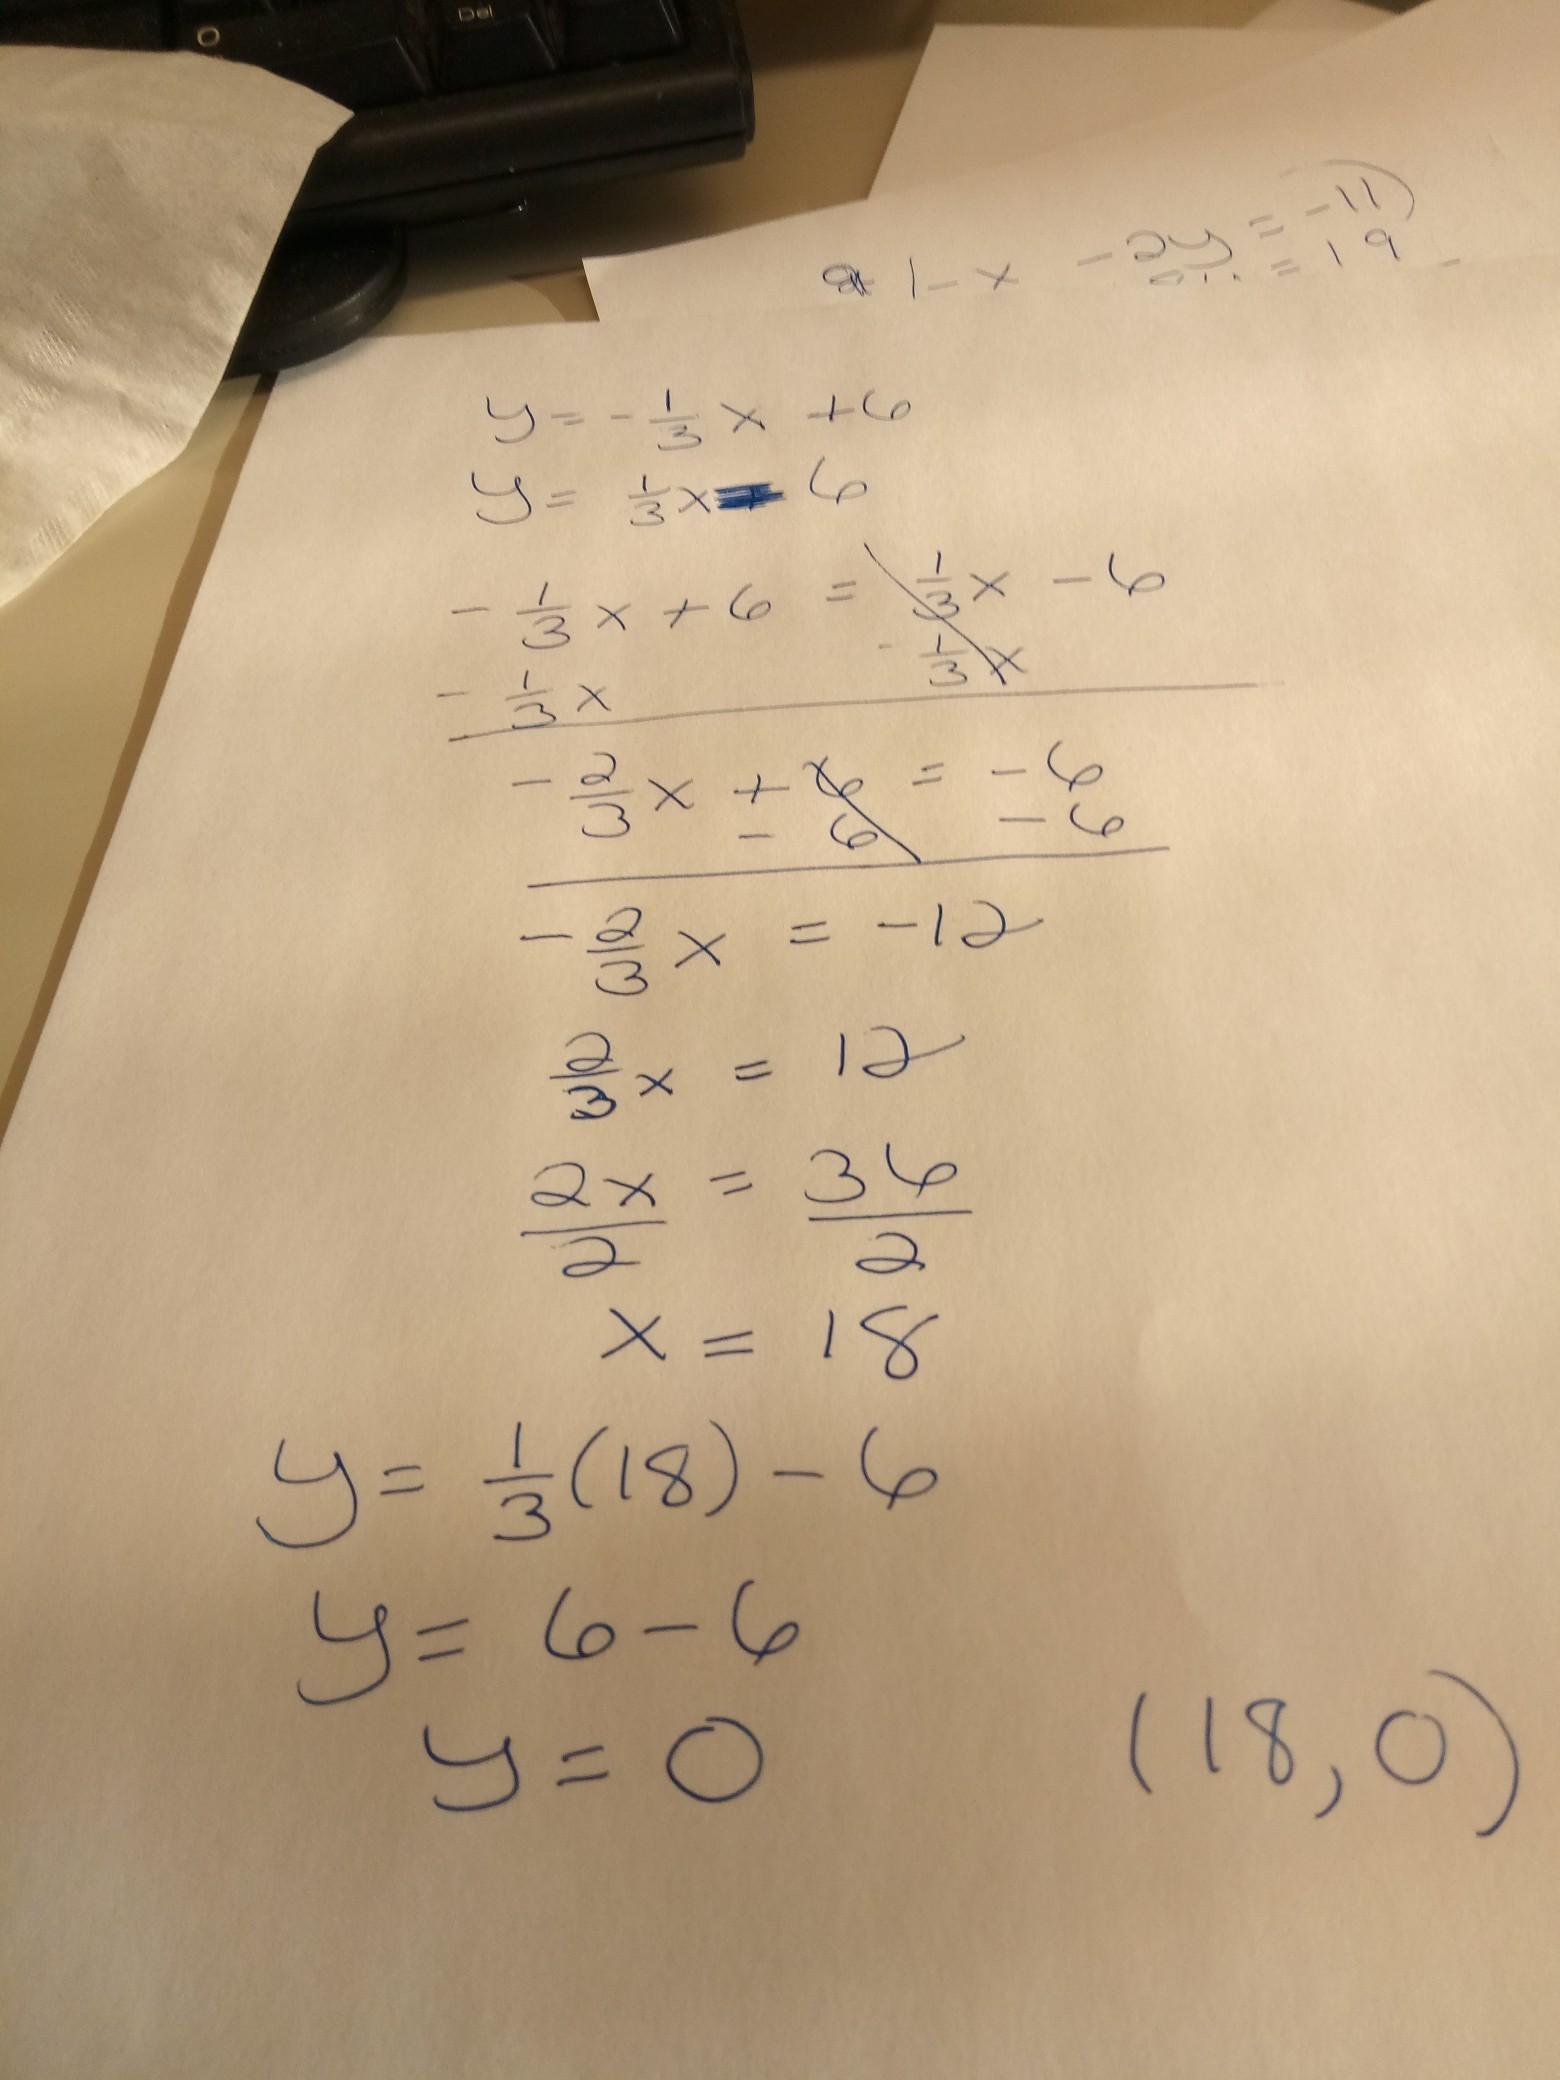 Del
- 11
1 - x - 2y = 19
y = - 1/3 x + 6
y = 1/3 x - 6
- 1/3 x + 6 = 1/3 x - 6
- 1/3 x - 1/3 x
- 2/3 x + 6 = - 6
- 6 - 6
- 2/3 x = - 12
2/3 x = 12
2x/2 = 36/2
x = 18
y = 1/3 (18) - 6
y = 6 - 6
y = 0 (18, 0)